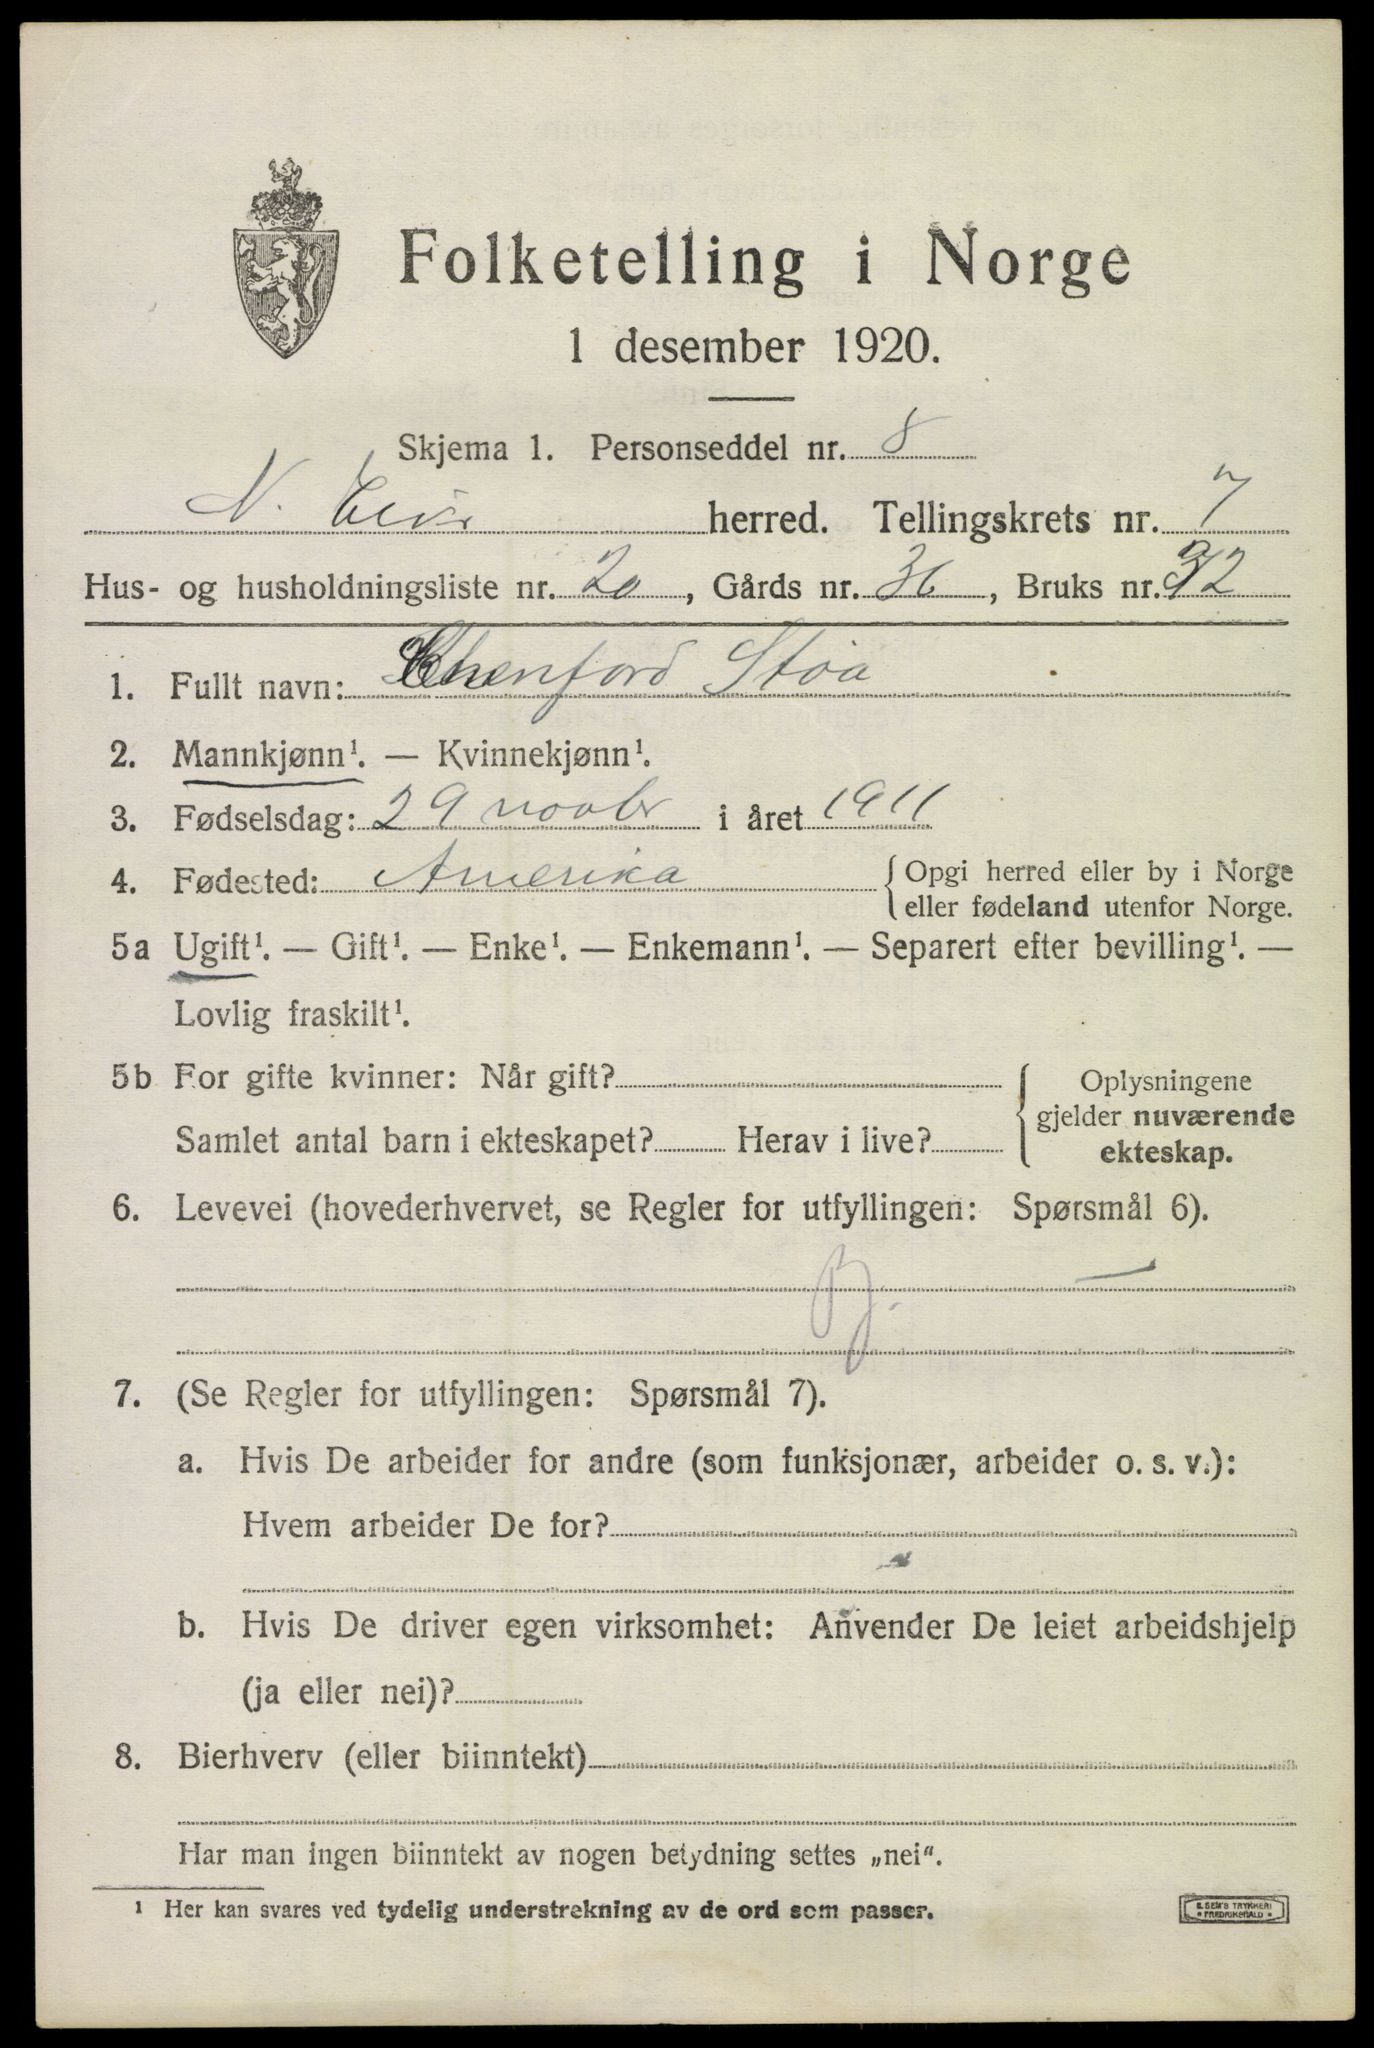 Folketelling i Norge
1 desember 1920.
Skjema 1. Personseddel nr. 8
N. Eiker herred. Tellingskrets nr. 7
Hus- og husholdningsliste nr. 20, Gårds nr. 36, Bruks nr. 32
1. Fullt navn: Støa
2. Mannkjønn¹. — Kvinnekjønn¹.
3. Fødselsdag: 29 novbr i året 1911
4. Fødested: Amerika { Opgi herred eller by i Norge
eller fødeland utenfor Norge.
5a Ugift¹. — Gift¹. — Enke¹. — Enkemann¹. — Separert efter bevilling¹. —
Lovlig fraskilt¹.
5b For gifte kvinner: Når gift? { Oplysningene
gjelder nuværende
Samlet antal barn i ekteskapet? Herav i live? ekteskap.
6. Levevei (hovederhvervet, se Regler for utfyllingen: Spørsmål 6).
B. —
7. (Se Regler for utfyllingen: Spørsmål 7).
a. Hvis De arbeider for andre (som funksjonær, arbeider o. s. v.):
Hvem arbeider De for?
b. Hvis De driver egen virksomhet: Anvender De leiet arbeidshjelp
(ja eller nei)?
8. Bierhverv (eller biinntekt)
Har man ingen biinntekt av nogen betydning settes „nei".
¹ Her kan svares ved tydelig understrekning av de ord som passer.
E. SEM'S TRYKKERI
FREDRIKSHALD